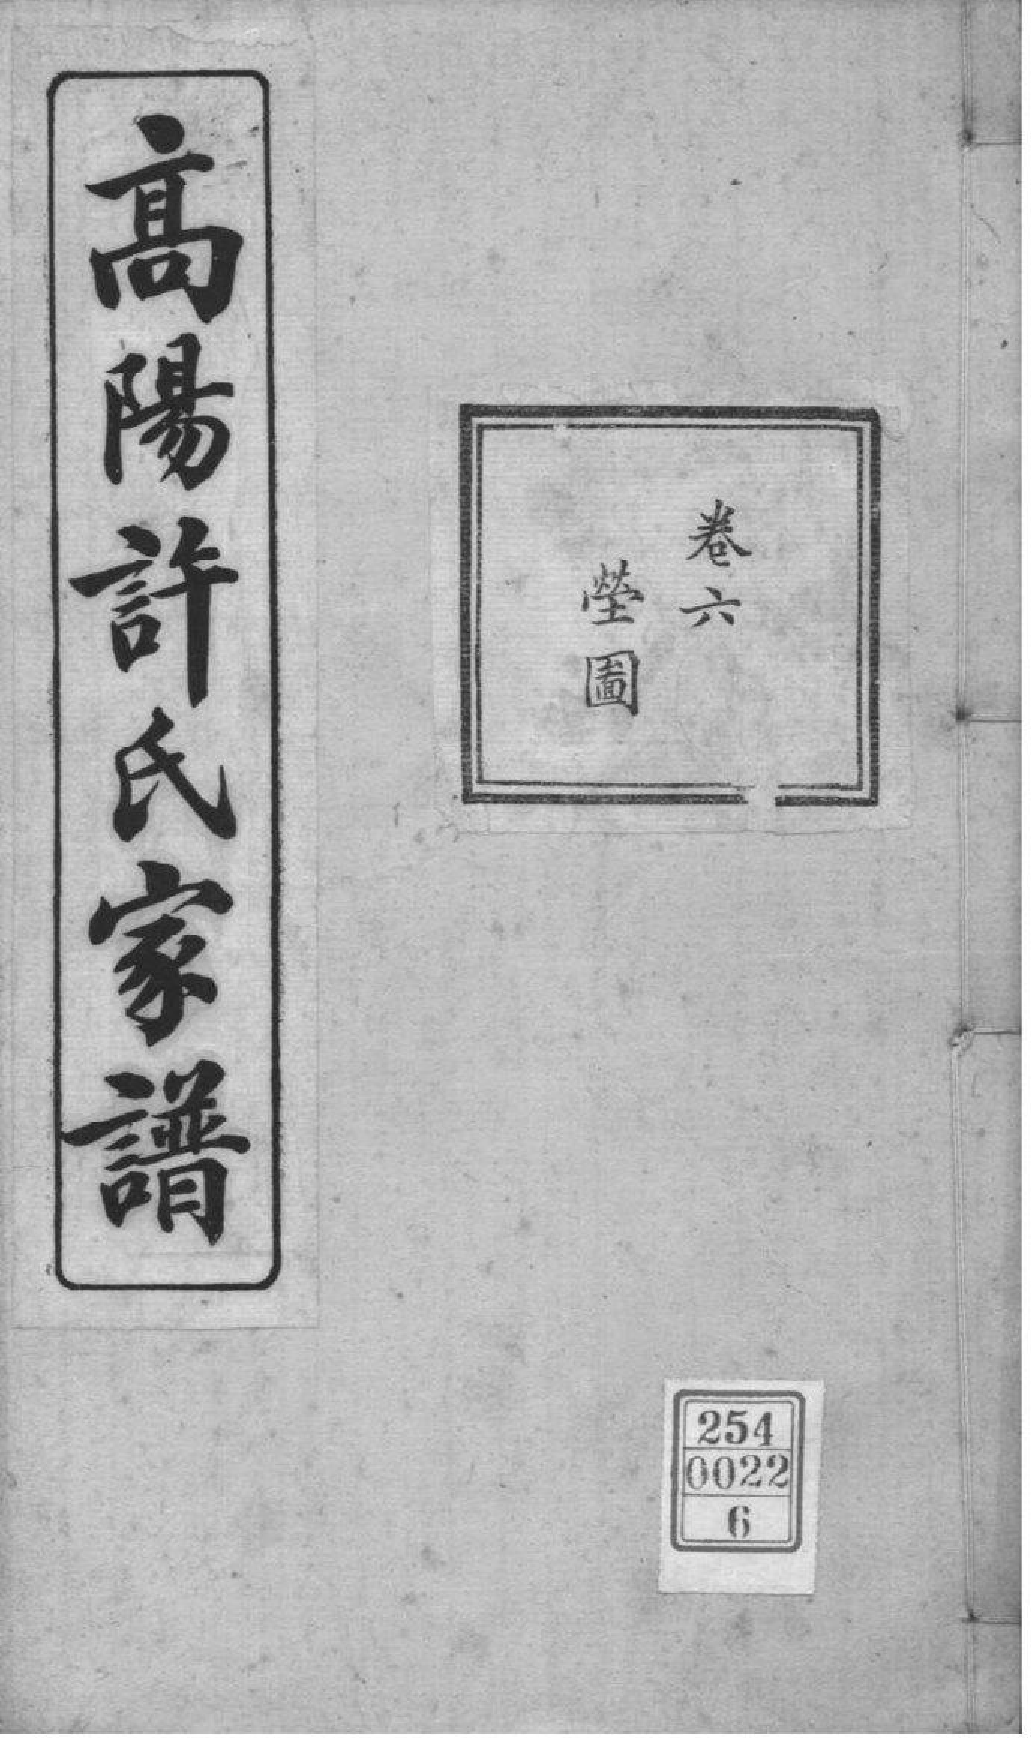 高陽許氏家譜
卷六
塋圖
254
0022
6